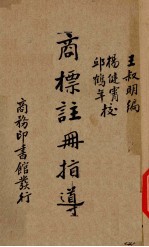 王叔明編
楊健霄校
邱鶴年
商標註冊指導
商務印書館發行